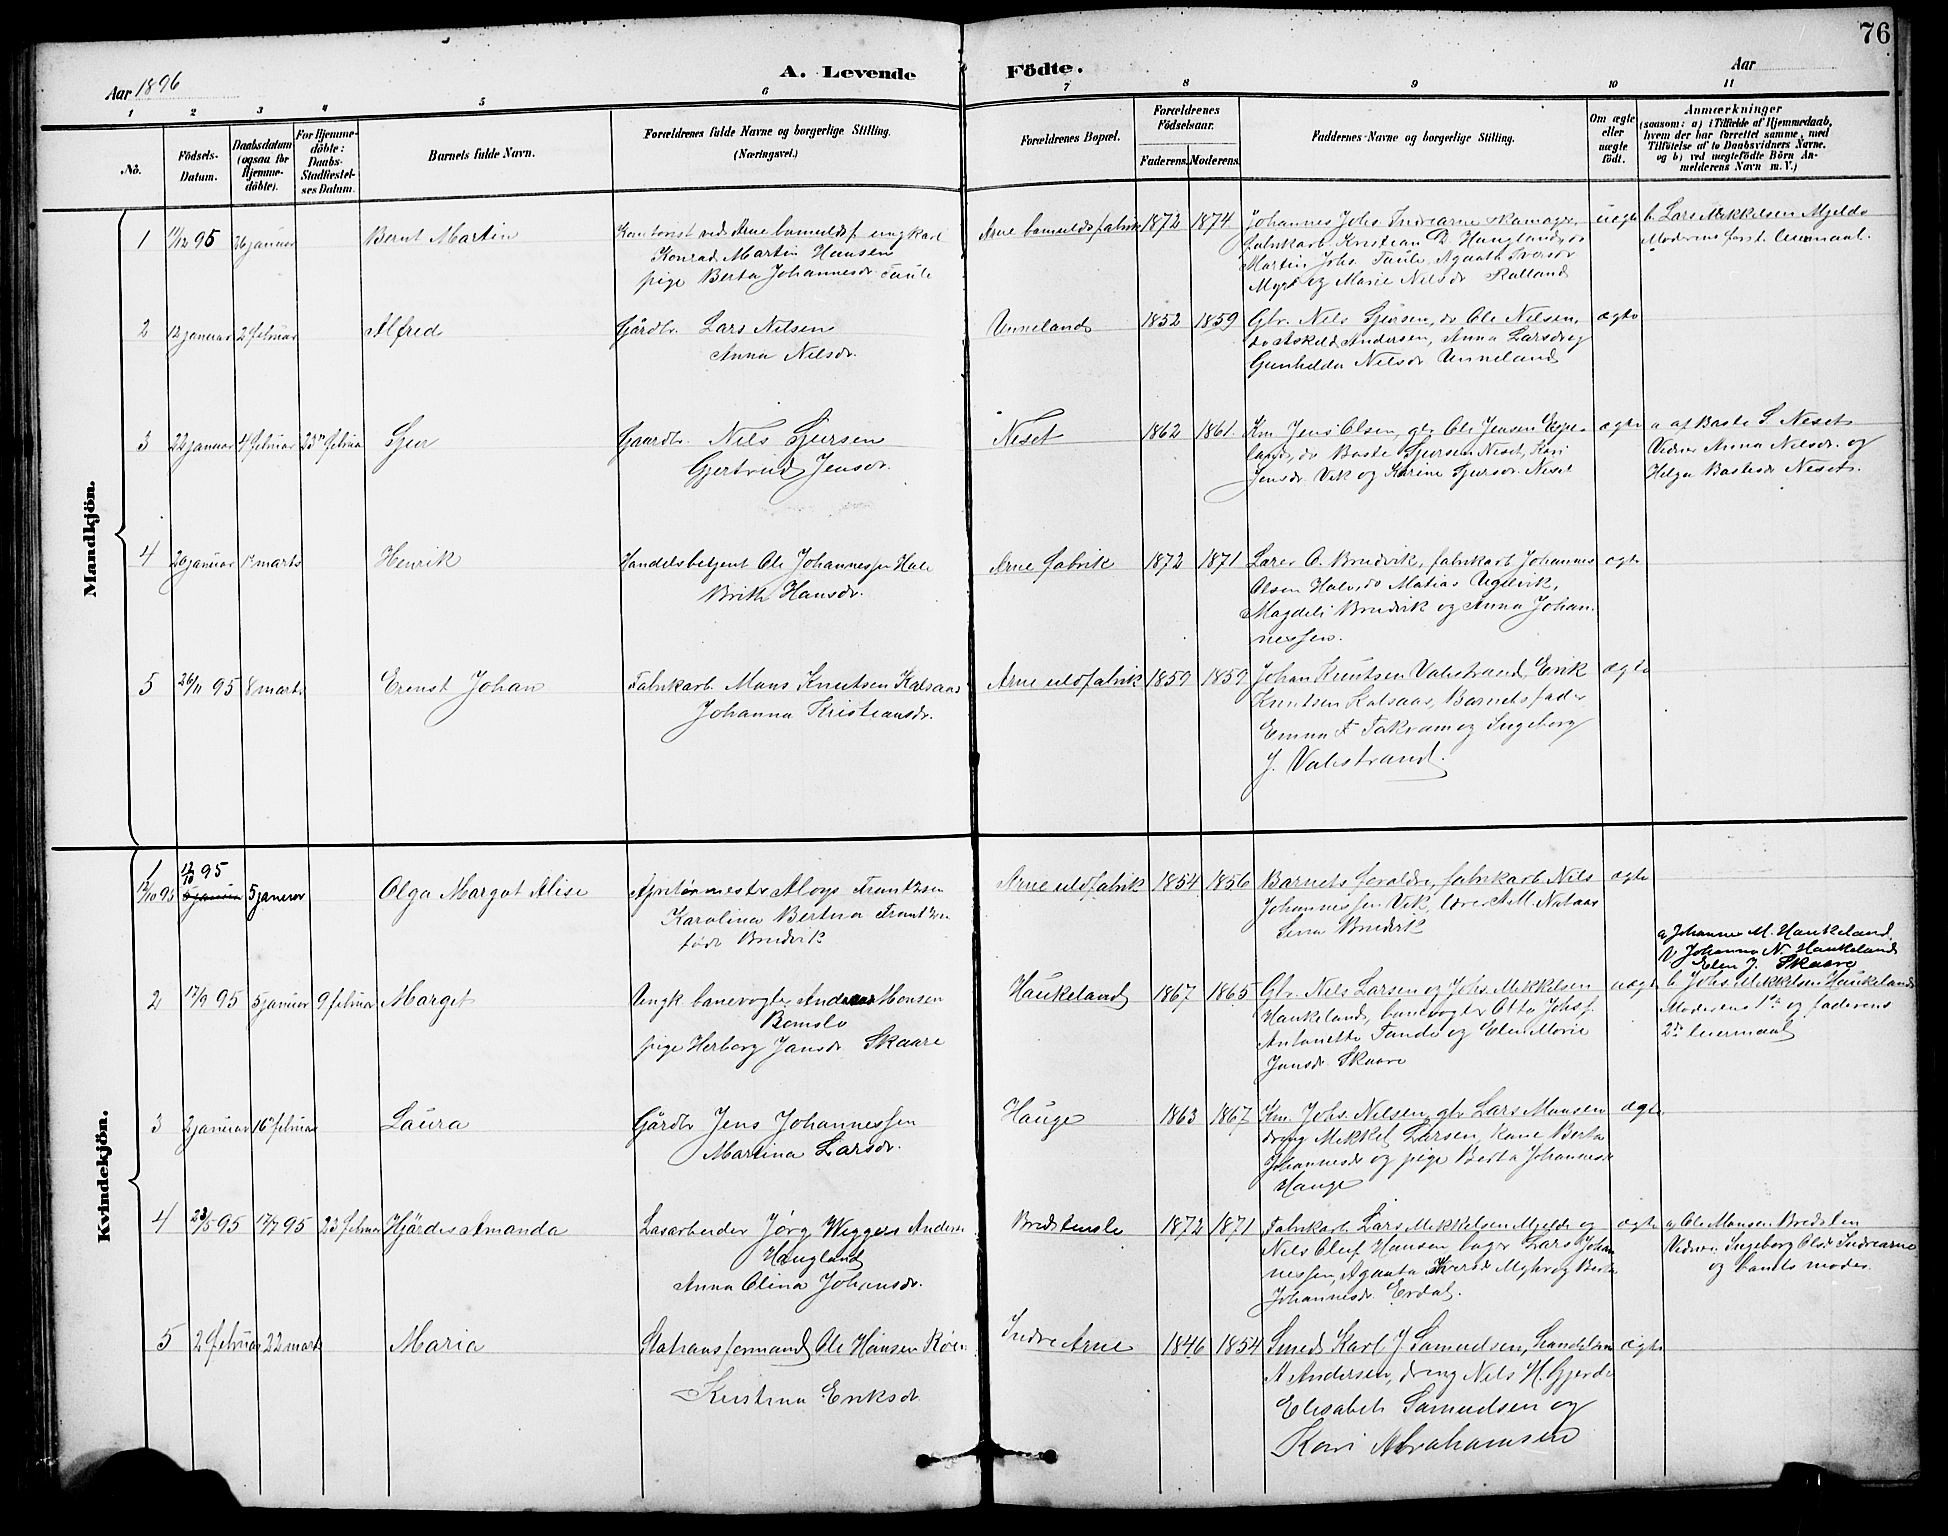 76
Aar 1896
A. Levende Födte.
Aar
1 2 3 4 5 6 7 8 9 10 11
No.
Födsels-
Datum.
Daabsdatum
(ogsaa for
Hjemme-
döbte).
For Hjemme-
döbte:
Daabs-
Stadfæstel-
ses Datum.
Barnets fulde Navn.
Forældrenes fulde Navne og borgerlige Stilling.
(Næringsvei.)
Forældrenes Bopæl.
Forældrenes
Födselsaar.
Faderens. Moderens.
Faddernes Navne og borgerlige Stilling.
Om ægte
eller
uægte
født.
Anmærkninger
(saasom: a) i Tilfælde af Hjemmedaab,
hvem der har forrettet samme, med
Tilföielse af to Daabsvidners Navne.
og b) ved uægtefödte Börn An-
melderens Navn m. V.)
Mandkjön.
1 11/12 95 26 januar Bernt Martin
Kontorist ved Arne bomuldsf. ungkarl
Konrad Martin Hansen
pige Berta Johannesdr. Taule
Arne bomuldsfabrik 1872 1874
Johannes Johs. Indrearne skomager,
fabrikarb. Kristian D. Haugland, do
Martin Johs. Taule, Agaata Iversdr
Myre og Marie Nilsdr Kalland
uægte
b. Lars Mikkelsen Mjelde
Moderens først leiermaal.
2 12 januar 2 februar Alfred
Gårdbr. Lars Nilsen
Anna Nilsdr.
Unneland 1852 1859
Gbr. Nils Sjursen, do Ole Nilsen,
do Askild Andersen, Anna Larsdr og
Gunhilda Nilsdr Unneland
ægte
3 22 januar 4 februar 23 februar Sjur
Gaardbr. Nils Sjursen
Gjertrud Jensdr.
Neset 1862 1861.
Km. Jens Olsen, gbr Ole Jensen Espe-
land, do Baste Sjursen Neset, Kari
Jensdr. Vik og Karine Sjursdr. Neset
ægte
a af Baste S Neset
Vidner Anna Nilsdr. og
Helga Bastesdr Neset.
4 20 januar 1 marts Henrik
Handelsbetjent Ole Johannessen Hole
Brithe Hansdr.
Arne fabrik 1872 1871
Lærer O. Brudvik, fabrikarb Johannes
Olsen Hole, do Matias Ugelvik,
Magdeli Brudvik og Anna Johan-
nessen.
ægte
5 26/11 95 8 marts Ernst Johan
Fabrikarb. Mons Knutsen Kalsaas
Johanna Kristiansdr.
Arne uldfabrik 1859 1859
Johan Knutsen Valestrand, Erik
Knutsen Kalsaas, Barnets fader
Emma F. Takvam og Ingeborg
J. Valestrand.
ægte
Kvindekjön.
1 12/10 95 12/10 95 5 januar Olga Margot Alise
Apretørmester Aloys Frantzen
Karolina Bertina Frantzen
født Brudvik
Arne uldfabrik 1854 1856
Barnets foraldre, fabrikarb. Nils
Johannessen Vik, lærer A.M. Nataas
Sina Brudvik
ægte
2 17/9 95 5 januar 9 februar Marget
Ungk banevogter Andreas Monsen
Bomslo
pige Herborg Jansdr. Skaare
Haukeland 1867 1865
Gbr. Nils Larsen og Johs. Mikkelsen
Haukeland, banevogter Otto Johs.
Antonette Tunde og Elen Marie
Jansdr Skaare
uægte
a Johannes M. Haukeland.
V. Johanna N. Haukeland
Elen J. Skaare
b. Johs Mikkelsen Haukeland
Moderens 1ste og faderens
2de leiermaal
3 2 januar 16 februar Laura
Gårdbr Jens Johannessen
Martina Larsdr.
Hauge 1863 1867
Km. Johs. Nilsen, gbr Lars Monsen
dreng Mikkel Larsen, kone Berta
Johannesdr og pige Berta Johannesdr
Hauge
ægte
4 23/5 95 17/7 95 23 februar Hjördis Amanda
Løsarbeider Jörg Wigger Anders.
Haugland
Anna Olina Johansdr.
Bredstensle 1872 1871
Fabrikarb. Lars Mikkelsen Mjelde og
Nils Oluf Hansen, bager Lars Johan-
nessen, Agaata Iversdr Myhr og Berta
Johannesdr. Erdal.
ægte
a Ole Monsen Bredsten
Vidner Ingeborg Olsdr Indrearne
og barnets moder.
5 2 februar 22 marts Maria
Stationsformand Ole Hansen Røen
Kristina Eriksdr.
Indre Arne 1846 1854
Smed Karl J Samuelsen, handelsm
A Andersen, dreng Nils H. Gjerde
Elisabeth Samuelsen og
Kari Abrahamsen
ægte